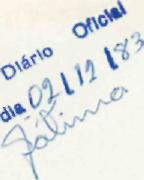 Diário Oficial
dia 02/12/83
Fátima